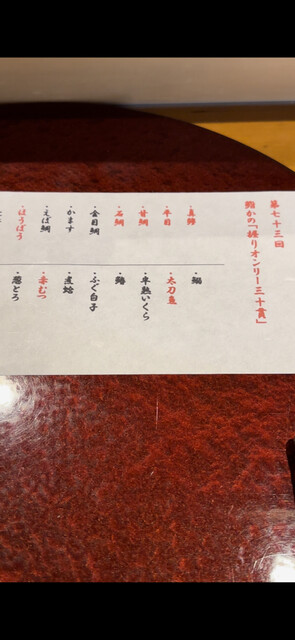 第七十三回
鮨かの「握りオンリー三十貫」
・平目
・甘鯛
・石鯛
・金目鯛
・かます
・えぼ鯛
・ほうぼう
・太刀魚
・半熟いくら
・ふぐ白子
・煮蛤
・赤むつ
・葱とろ